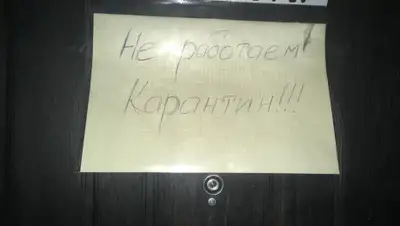 Не работаем
Карантин!!!